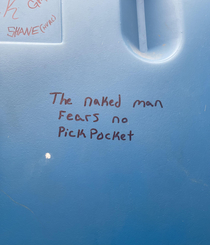 SHANE
The naked man
Fears no
Pick Pocket